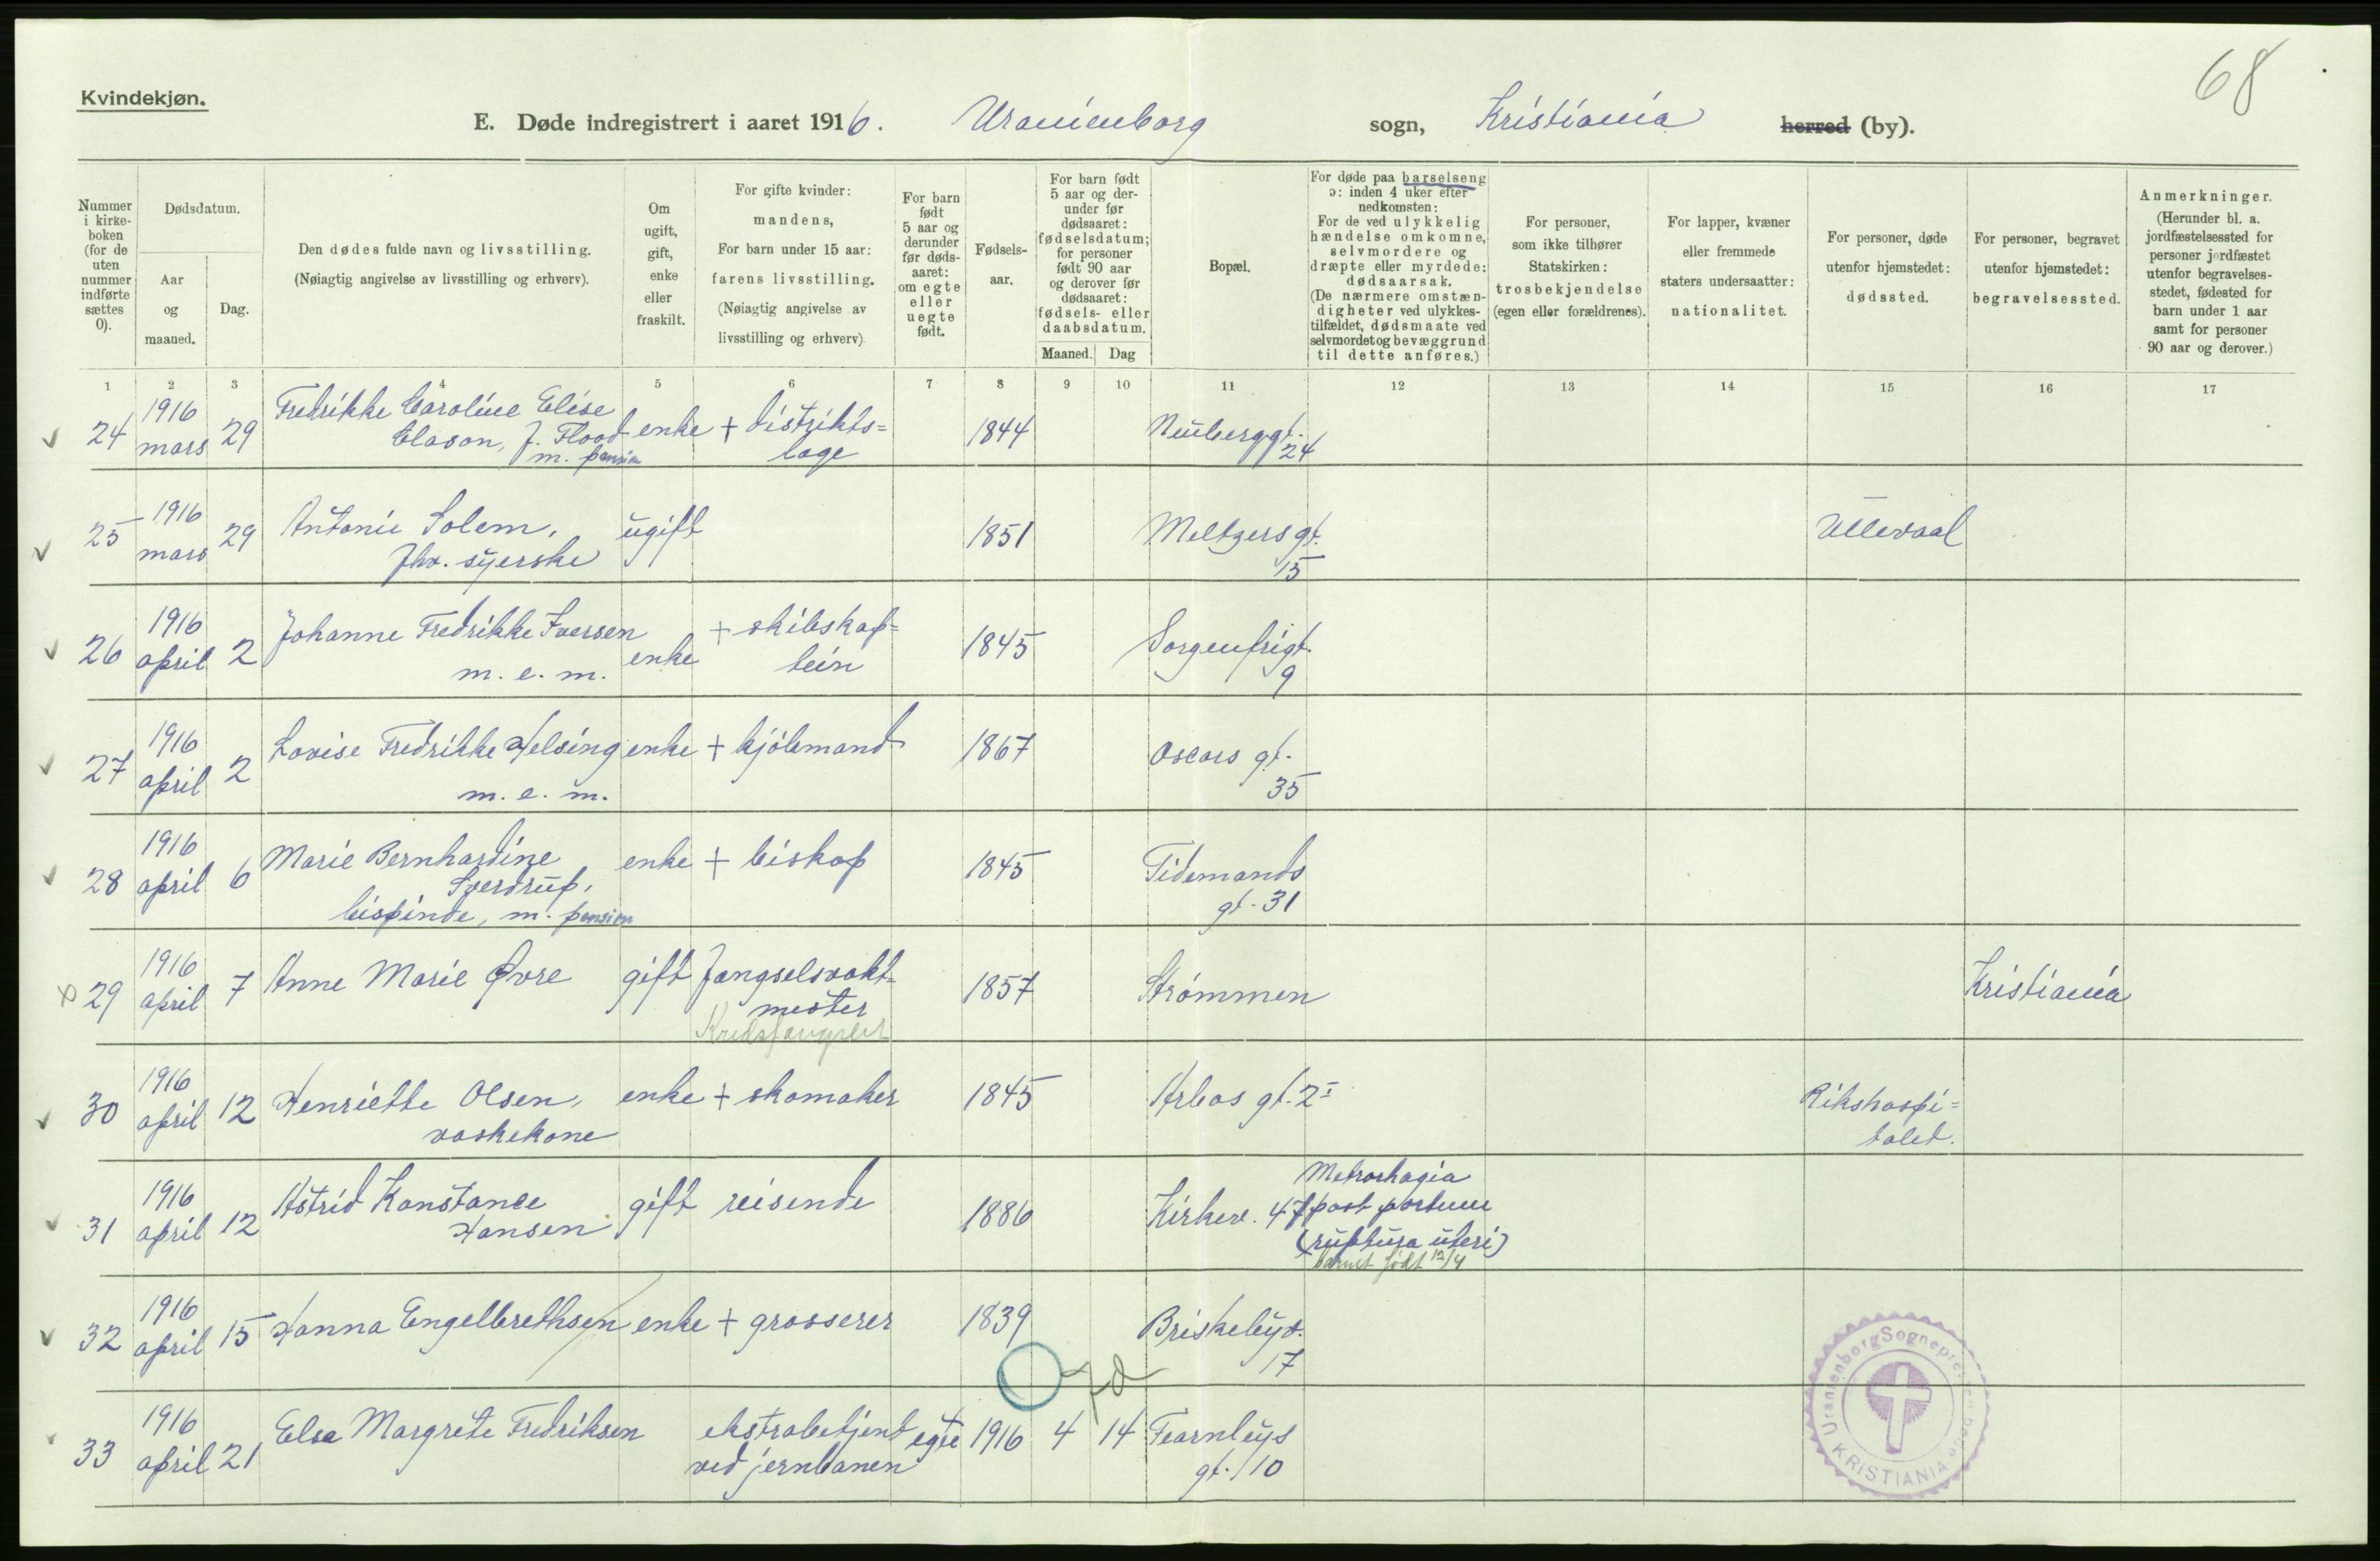 68
Kvindekjøn.
E. Døde indregistrert i aaret 1916. Uranienborg sogn, Kristiania herred (by).
Nummer i kirke-boken (for de uten nummer indførte sættes 0).
Dødsdatum.
Aar og maaned.
Dag.
Den dødes fulde navn og livsstilling.
(Nøiagtig angivelse av livsstilling og erhverv).
Om ugift, gift, enke eller fraskilt.
For gifte kvinder:
mandens,
For barn under 15 aar:
farens livsstilling.
(Nøiagtig angivelse av
livsstilling og erhverv)
For barn født 5 aar og derunder før døds-aaret: om egte eller uegte født.
Fødsels-aar.
For barn født 5 aar og der-under før dødsaaret: fødselsdatum; for personer født 90 aar og derover før dødsaaret: fødsels- eller daabsdatum.
Maaned. Dag
Bopæl.
For døde paa barselseng ɔ: inden 4 uker efter nedkomsten:
For de ved ulykkelig hændelse omkomne, selvmordere og dræpte eller myrdede: dødsaarsak.
(De nærmere omstæn-digheter ved ulykkes-tilfældet, dødsmaate ved selvmordet og bevæggrund til dette anføres.)
For personer, som ikke tilhører Statskirken: trosbekjendelse (egen eller forældrenes).
For lapper, kvæner eller fremmede staters undersaatter: nationalitet.
For personer, døde utenfor hjemstedet: dødssted.
For personer, begravet utenfor hjemstedet: begravelsessted.
Anmerkninger.
(Herunder bl. a. jordfæstelsessted for personer jordfæstet utenfor begravelses-stedet, fødested for barn under 1 aar samt for personer 90 aar og derover.)
1 2 3 4 5 6 7 8 9 10 11 12 13 14 15 16 17
24 1916 mars 29 Fredrikke Caroline Elise Clason, f. Flood m. pension enke + distrikts= læge 1844 Neuberggt. 24
25 1916 mars 29 Antonie Solem, fhv. syerske ugift 1851 Meltzers gt. 15 Ullevaal
26 1916 april 2 Johanne Fredrikke Iversen m. e. m. enke + skibskap= tein 1845 Sorgenfrigt. 9
27 1916 april 2 Lovise Fredrikke Helsing m. e. m. enke + kjølemand 1867 Oscars gt. 35
28 1916 april 6 Marie Bernhardine Sverdrup, bispinde, m. pension enke + biskop 1845 Tidemands gt. 31
29 1916 april 7 Anne Marie Øvre gift Fangselsvakt= mester 1857 Strømmen Kristiania
30 1916 april 12 Henriette Olsen, vaskekone enke + skomaker 1845 Arbos gt. 2 I Rikshospi= talet.
31 1916 april 12 Astrid Konstance Hansen gift reisende 1886 Kirkev. 47 Metrorhagia post partum (ruptura uteri) barnet født 12/4
32 1916 april 15 Hanna Engelbrethsen enke + grosserer 1839 Briskebyv. 17
33 1916 april 21 Elsa Margrete Fredriksen ekstrabetjent ved jernbanen egte 1916 4 14 Fearnleys gt. 10
7d
Uranienborg Sogneprest
KRISTIANIA